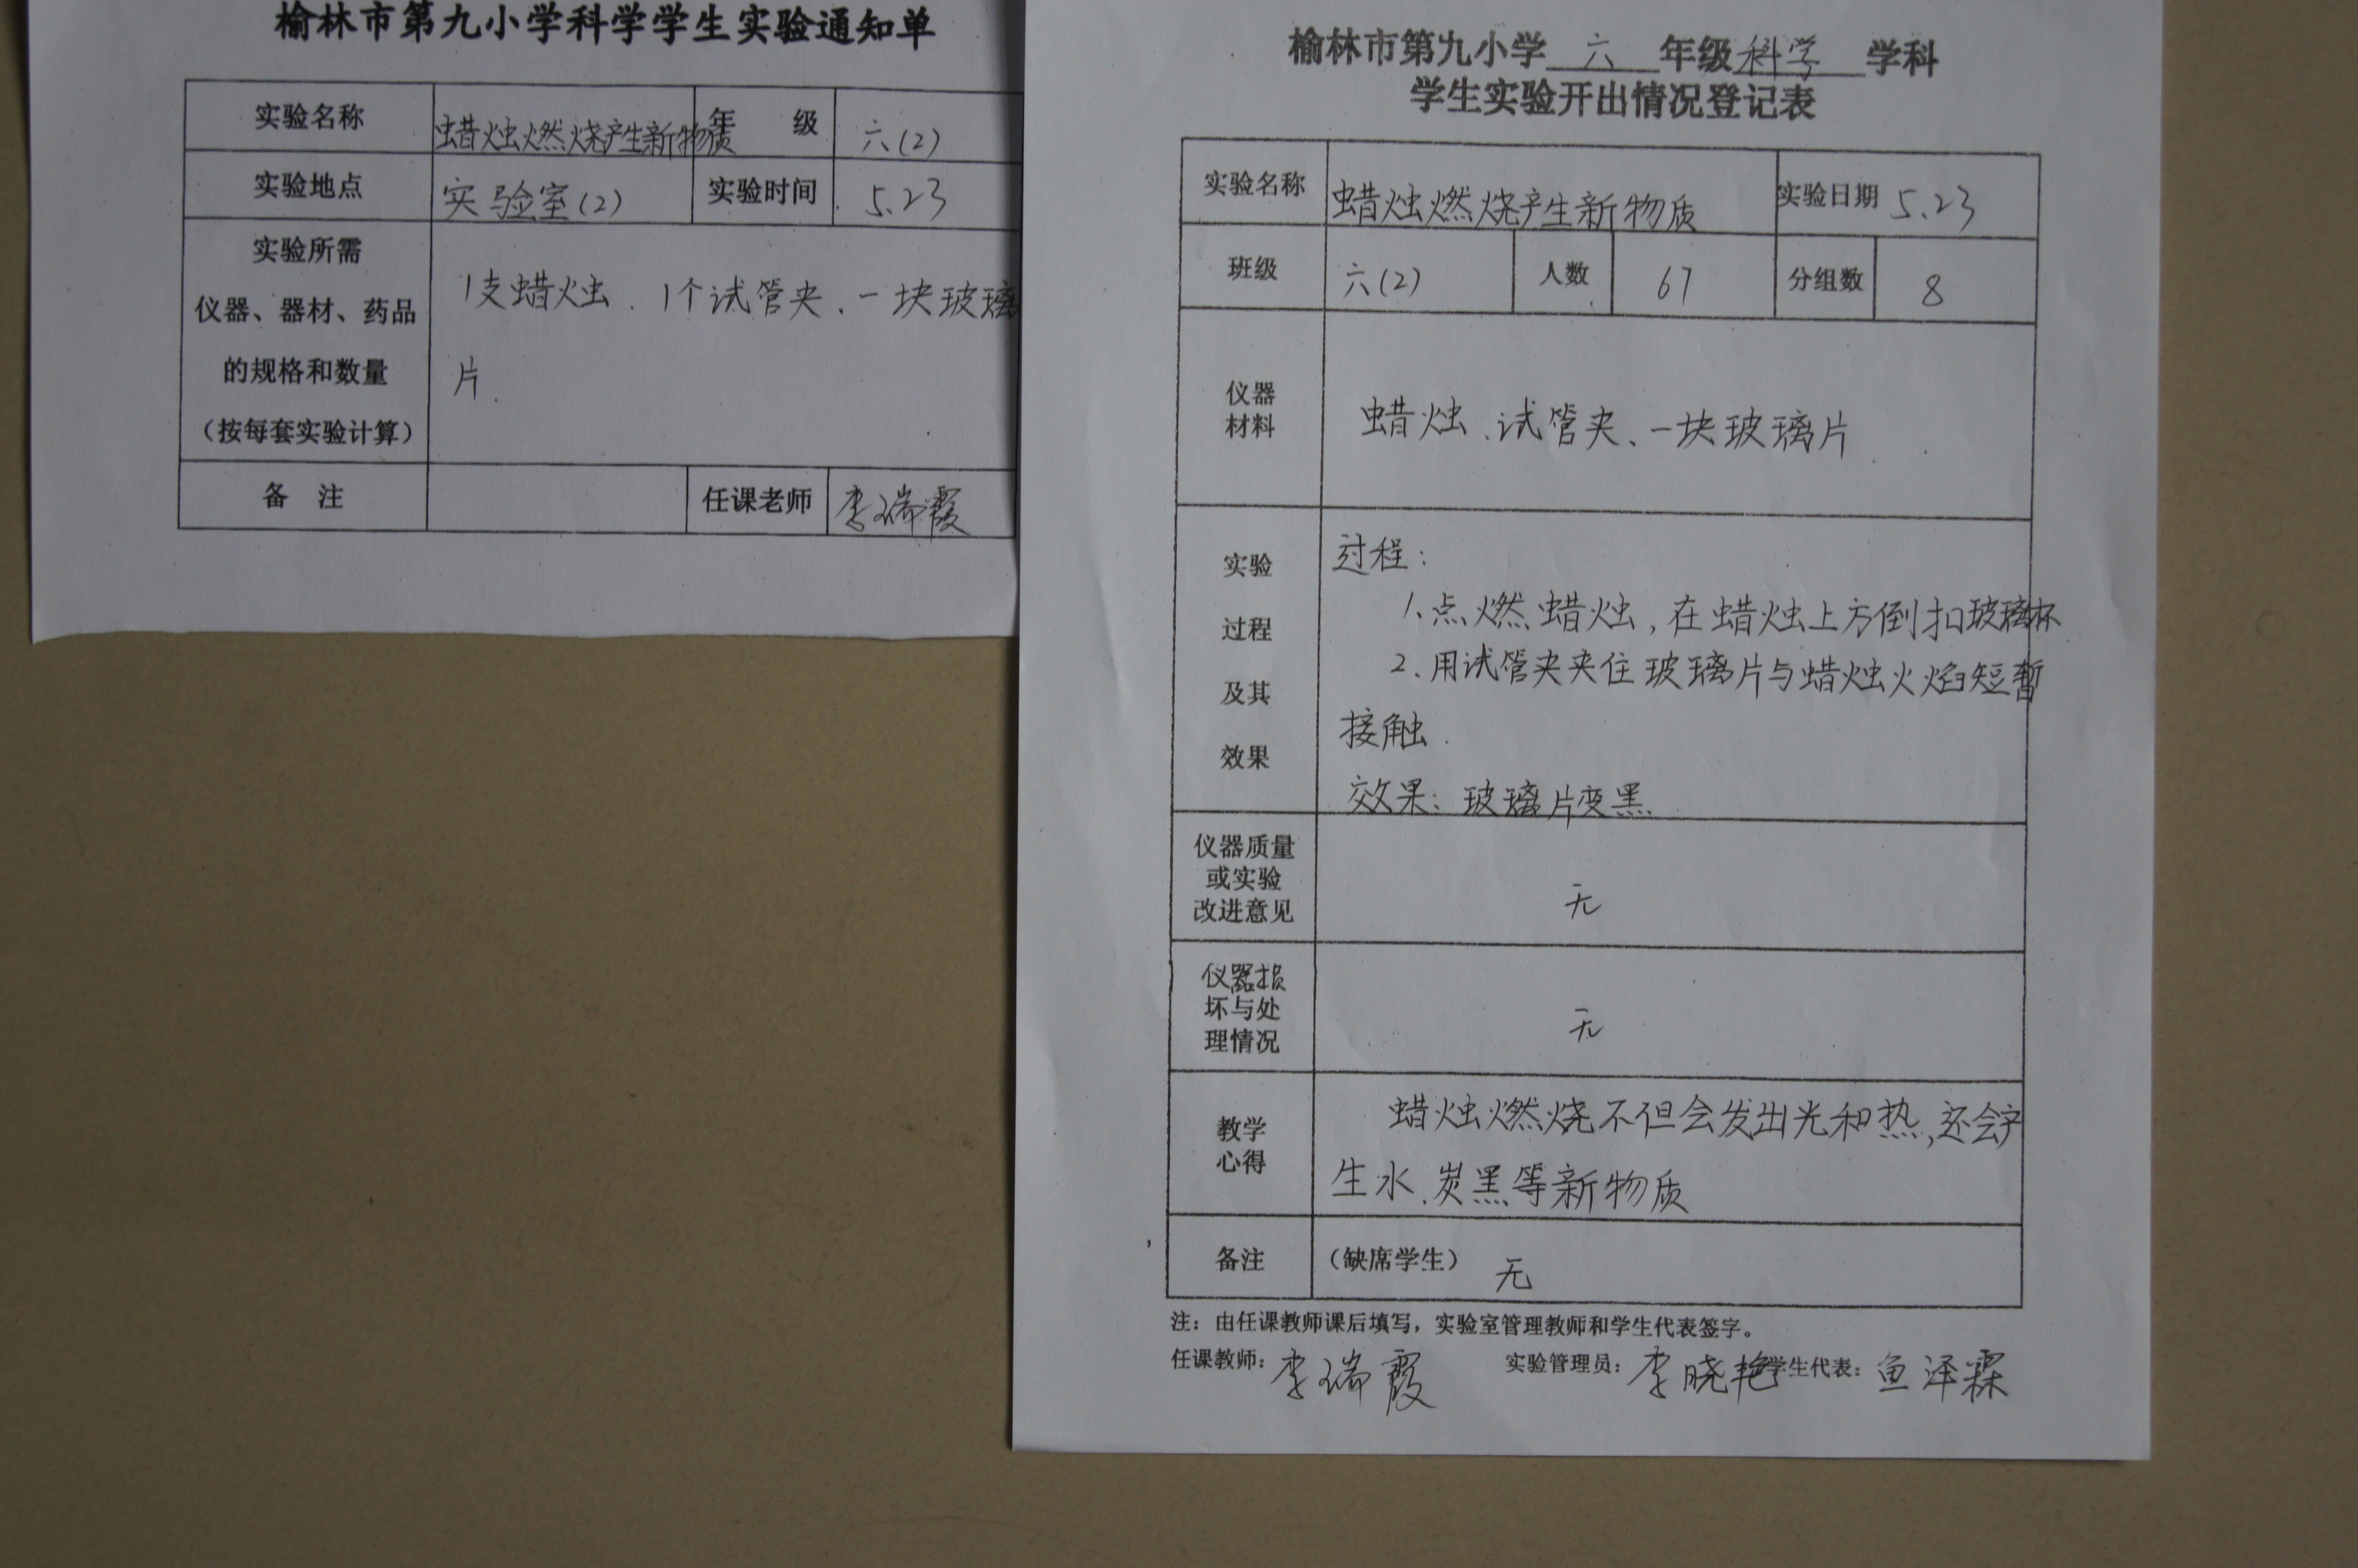 榆林市第九小学科学学生实验通知单
实验名称 蜡烛燃烧产生新物质 年 级 六(2)
实验地点 实验室(2) 实验时间 5.23
实验所需
仪器、器材、药品
的规格和数量
（按每套实验计算）
1支蜡烛、1个试管夹、一块玻璃
片.
备 注 任课老师 李瑞霞
榆林市第九小学 六 年级 科学 学科
学生实验开出情况登记表
实验名称 蜡烛燃烧产生新物质 实验日期 5.23
班级 六(2) 人数 67 分组数 8
仪器
材料
蜡烛、试管夹、一块玻璃片
实验
过程
及其
效果
过程：
1.点燃蜡烛，在蜡烛上方倒扣玻璃杯
2.用试管夹夹住玻璃片与蜡烛火焰短暂
接触.
效果：玻璃片变黑
仪器质量
或实验
改进意见
无
仪器损
坏与处
理情况
无
教学
心得
蜡烛燃烧不但会发出光和热,还会产
生水、炭黑等新物质
备注 （缺席学生） 无
注：由任课教师课后填写，实验室管理教师和学生代表签字。
任课教师：李瑞霞 实验管理员：李晓艳 学生代表：鱼泽霖